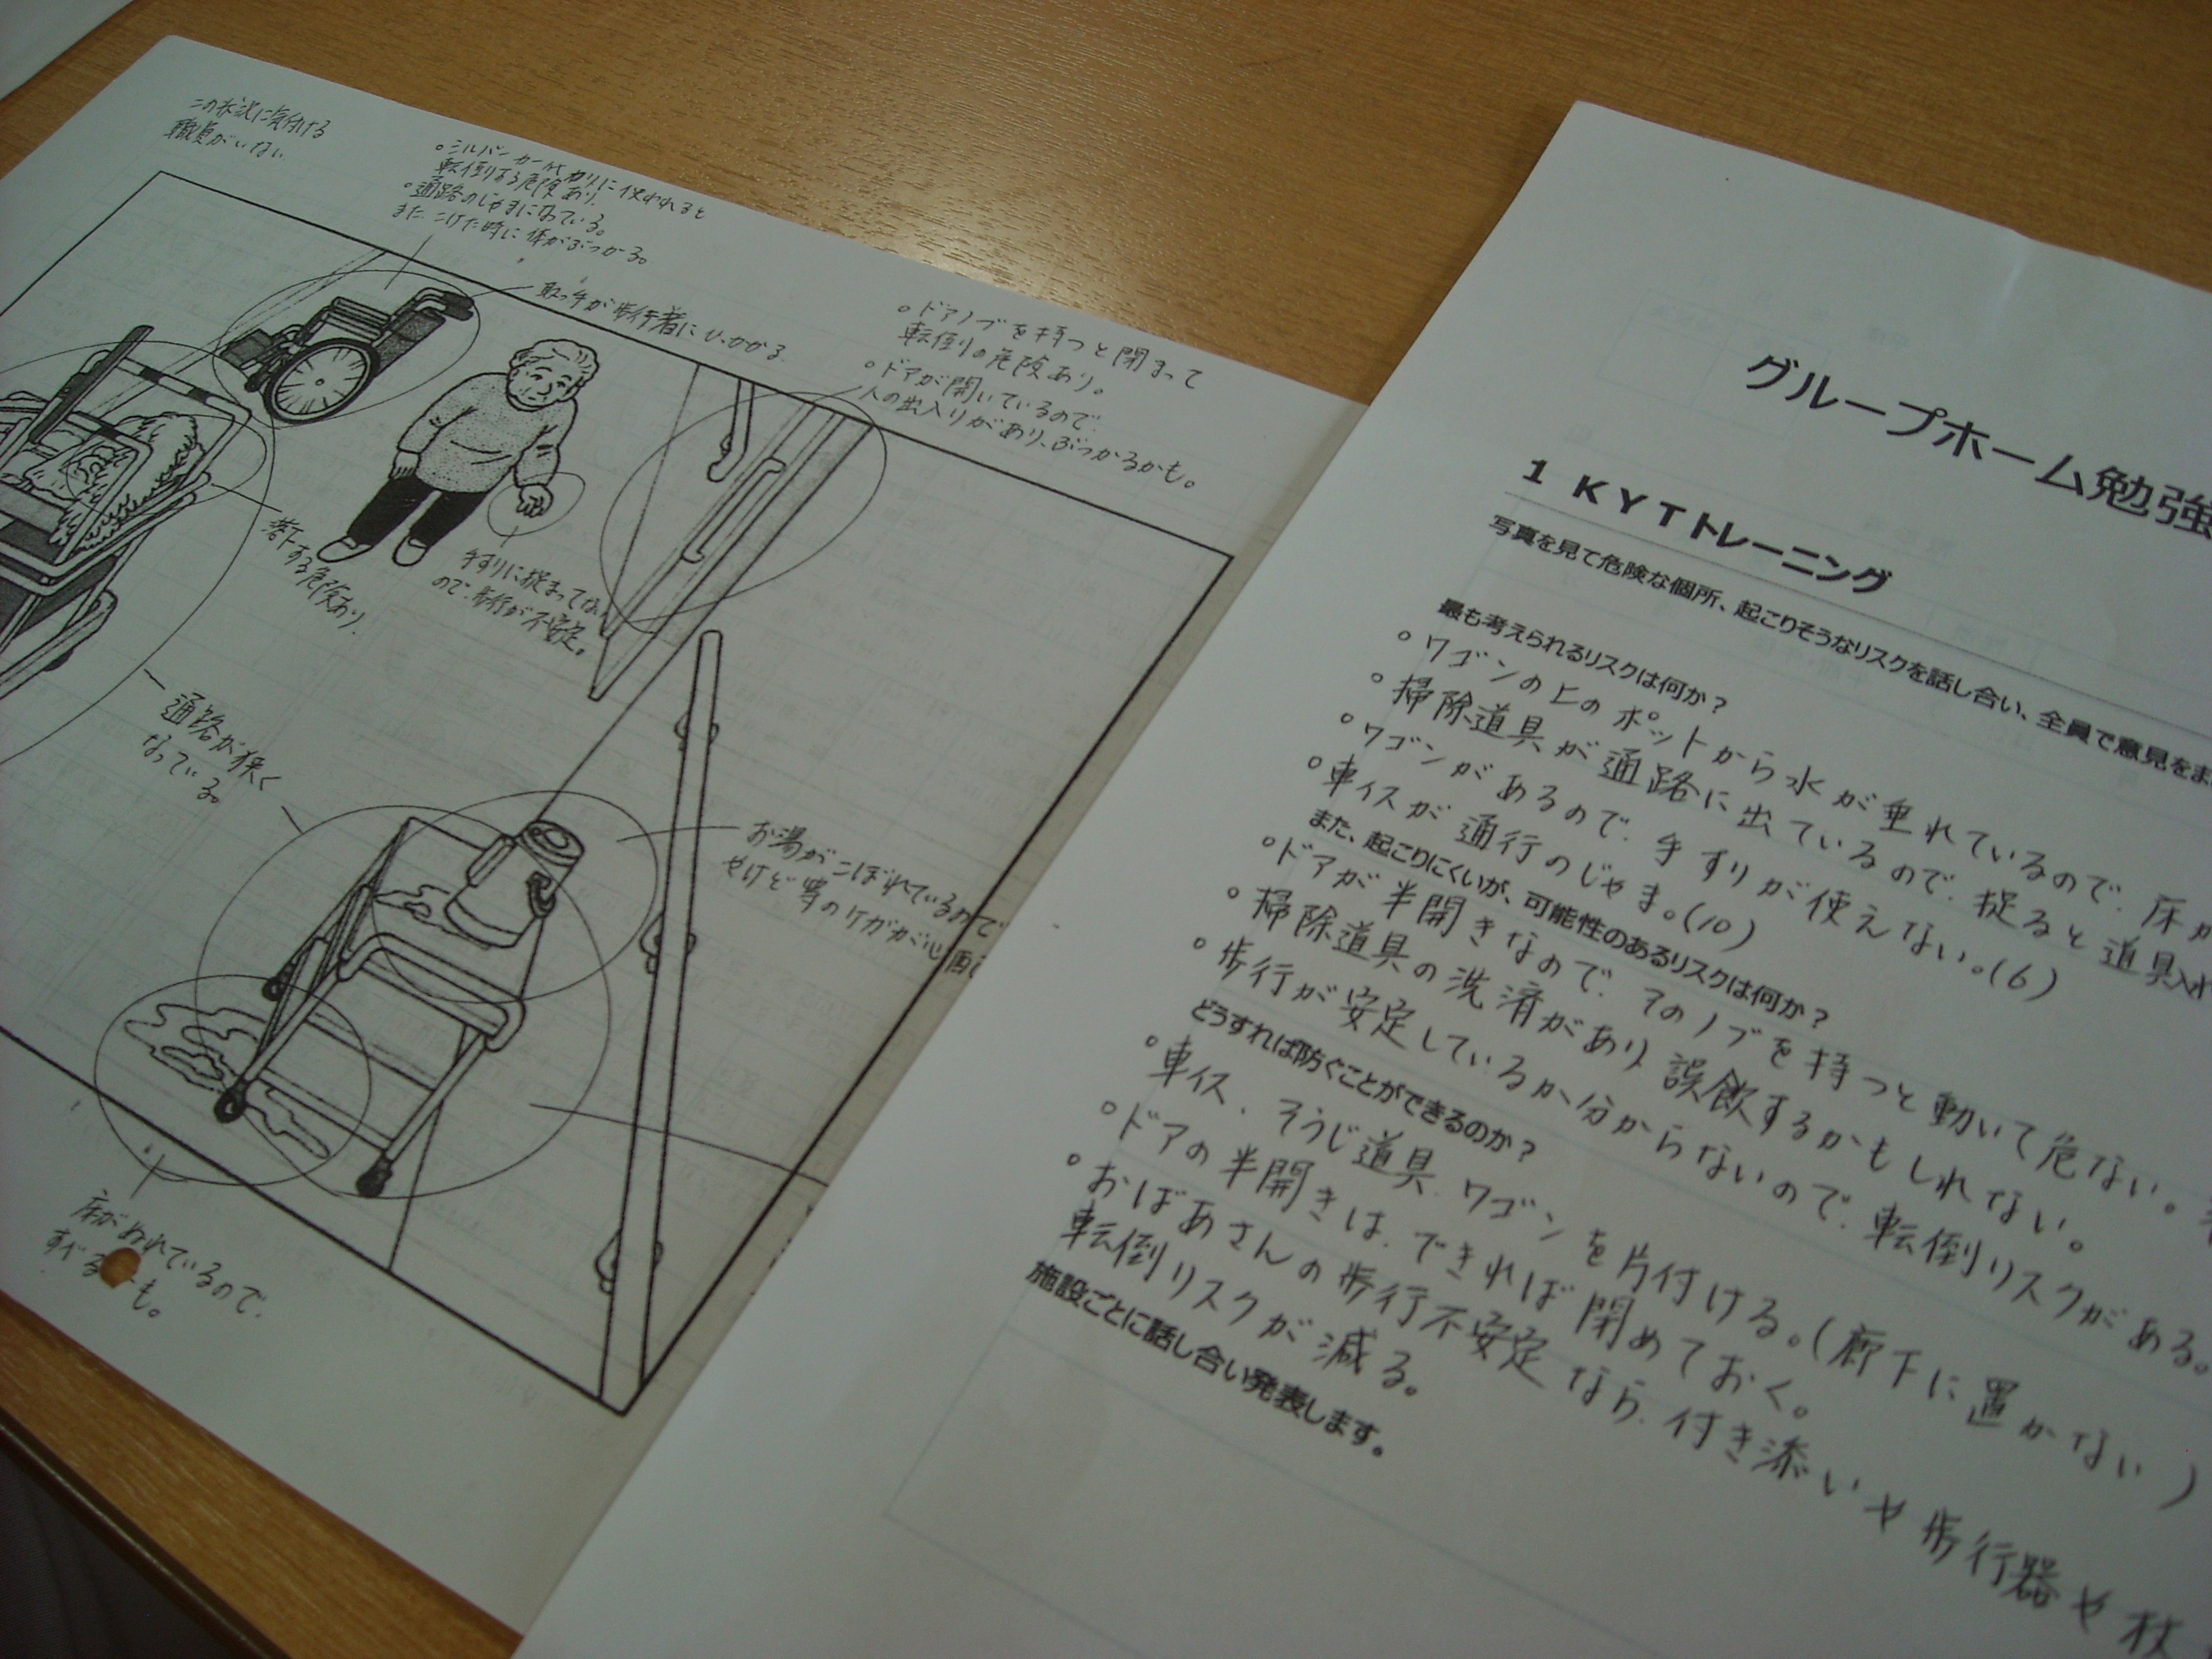 この状況に気付ける
職員がいない
。シルバーカー代わりに使われると
転倒する危険あり。
。通路のじゃまになっている。
また、こけた時に体がぶつかる。
取っ手が歩行者にひっかかる。
。ドアノブを持つと閉まって
転倒の危険あり。
。ドアが開いているので、
人の出入りがあり、ぶつかるかも。
落下する危険あり。
手すりに捉まってない
ので、歩行が不安定。
通路が狭く
なっている。
お湯がこぼれているので
やけど等のケガが心配
床がぬれているので、
すべる も。
グループホーム勉強
1 KYTトレーニング
写真を見て危険な個所、起こりそうなリスクを話し合い、全員で意見をま
最も考えられるリスクは何か?
。ワゴンの上のポットから水が垂れているので、床が
。掃除道具が通路に出ているので、捉ると道具入れ
。ワゴンがあるので、手すりが使えない。(6)
。車イスが通行のじゃま。(10)
また、起こりにくいが、可能性のあるリスクは何か?
。ドアが半開きなので、そのノブを持つと動いて危ない。
。掃除道具の洗済があり、誤飲するかもしれない。
。歩行が安定しているか分からないので、転倒リスクがある。
どうすれば防ぐことができるのか?
。車イス、そうじ道具、ワゴンを片付ける。(廊下に置かない)
。ドアの半開きは、できれば閉めておく。
。おばあさんの歩行不安定なら、付き添いや歩行器や杖
転倒リスクが減る。
施設ごとに話し合い発表します。